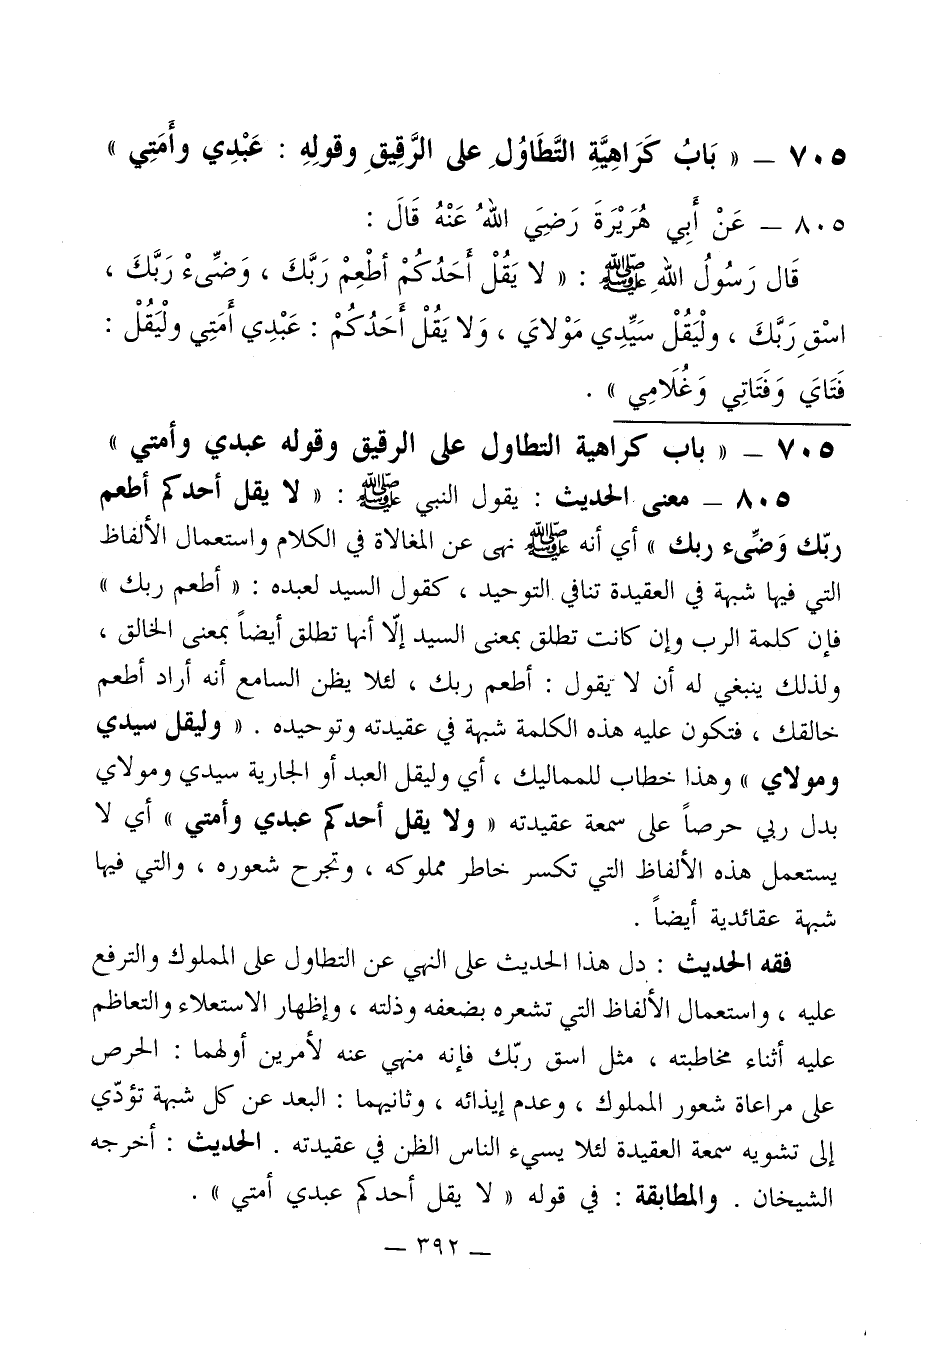 ٧٠٥ – « بَابُ كَرَاهِيَّةِ التَّطَاوُلِ على الرَّقِيقِ وقولِهِ : عَبْدِي وأَمَتِي »
٨٠٥ – عَنْ أَبِي هُرَيْرَةَ رَضِيَ اللهُ عَنْهُ قَالَ :
قَال رَسُولُ اللهِ ﷺ : « لا يَقُلْ أَحَدُكُمْ أطْعِمْ رَبَّكَ ، وَضِّىءْ رَبَّكَ ،
اسْقِ رَبَّكَ ، ولْيَقُلْ سَيِّدِي مَوْلايَ ، وَلا يَقُلْ أَحَدُكُمْ : عَبْدِي أَمَتِي ولْيَقُلْ :
فَتَايَ وَفَتَاتِي وَغُلَامِي » .
٧٠٥ – « باب كراهية التطاول على الرقيق وقوله عبدي وأمتي »
٨٠٥ – معنى الحديث : يقول النبي ﷺ : « لا يقل أحدكم أطعم
ربّك وَضِّىء ربك » أي أنه ﷺ نهى عن المغالاة في الكلام واستعمال الألفاظ
التي فيها شبهة في العقيدة تنافي التوحيد ، كقول السيد لعبده : « أطعم ربك »
فإن كلمة الرب وإن كانت تطلق بمعنى السيد إلّا أنها تطلق أيضاً بمعنى الخالق ،
ولذلك ينبغي له أن لا يقول : أطعم ربك ، لئلا يظن السامع أنه أراد أطعم
خالقك ، فتكون عليه هذه الكلمة شبهة في عقيدته وتوحيده . « وليقل سيدي
ومولاي » وهذا خطاب للمماليك ، أي وليقل العبد أو الجارية سيدي ومولاي
بدل ربي حرصاً على سمعة عقيدته « ولا يقل أحدكم عبدي وأمتي » أي لا
يستعمل هذه الألفاظ التي تكسر خاطر مملوكه ، وتجرح شعوره ، والتي فيها
شبهة عقائدية أيضاً .
فقه الحديث : دل هذا الحديث على النهي عن التطاول على المملوك والترفع
عليه ، واستعمال الألفاظ التي تشعره بضعفه وذلته ، وإظهار الاستعلاء والتعاظم
عليه أثناء مخاطبته ، مثل اسق ربّك فإنه منهي عنه لأمرين أولهما : الحرص
على مراعاة شعور المملوك ، وعدم إيذائه ، وثانيهما : البعد عن كل شبهة تؤدّي
إلى تشويه سمعة العقيدة لئلا يسيء الناس الظن في عقيدته . الحديث : أخرجه
الشيخان . والمطابقة : في قوله « لا يقل أحدكم عبدي أمتي » .
– ٣٩٢ –